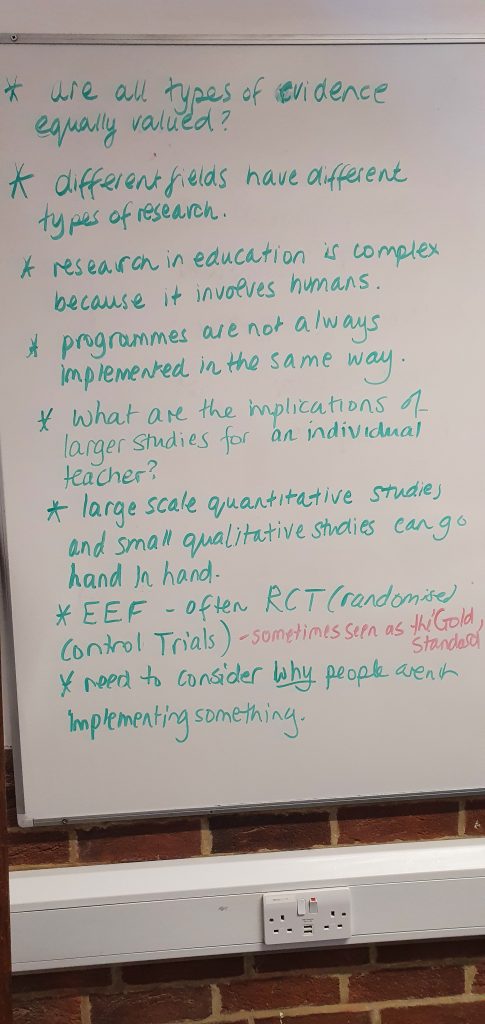 * are all types of evidence
equally valued?
* different fields have different
types of research.
* research in education is complex
because it involves humans.
* programmes are not always
implemented in the same way.
* What are the implications of
larger studies for an individual
teacher?
* large scale quantitative studies
and small qualitative studies can go
hand in hand.
* EEF - often RCT (randomised
Control Trials) - sometimes seen as the 'Gold
Standard
* need to consider why people aren't
implementing something.